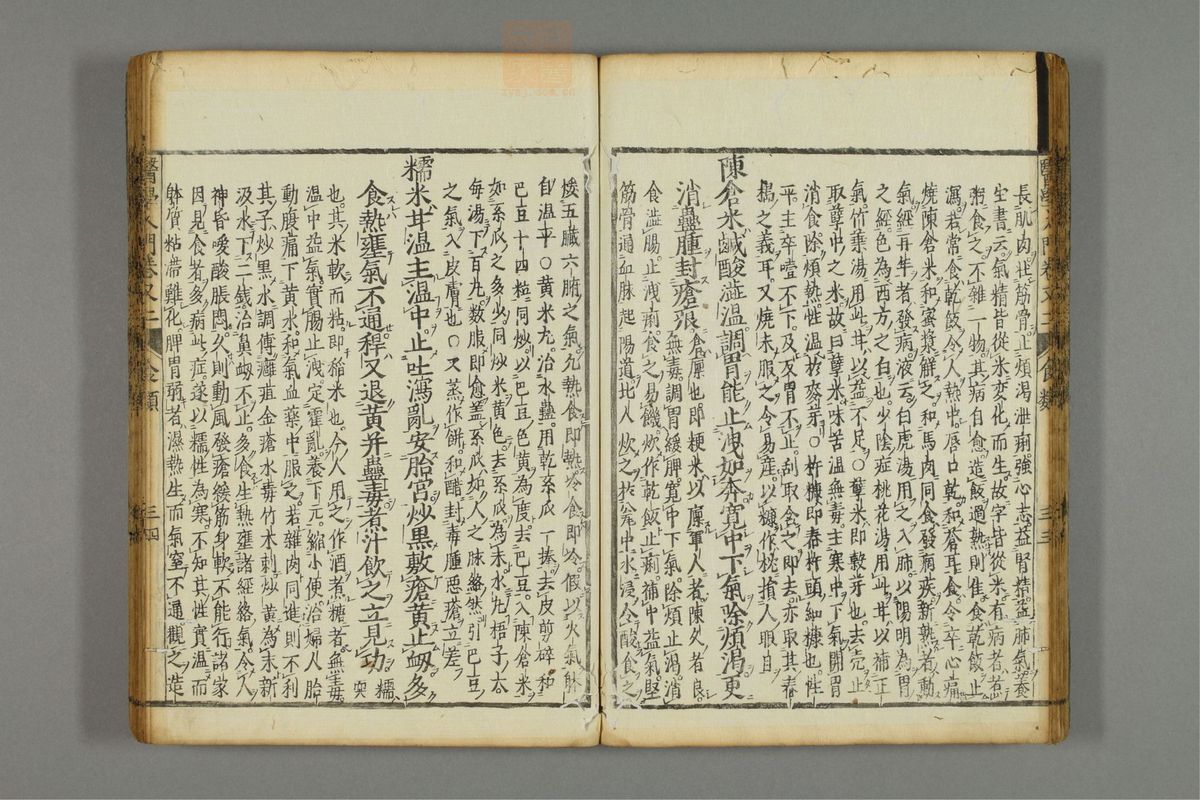 長肌肉壯筋骨止煩渴泄痢強心志益腎精益肺氣養
生書云氣精皆從米變化而生故字皆從米有病者忌
粥食之不雜一物其病自愈造飯過熱則佳食乾飯止
瀉若常食乾飯令人熱中唇口乾和蒼耳食令卒心痛
燒陳倉米和蜜漿解之和馬肉同食發痼疾新熟者動
氣經再年者發病液云白虎湯用之入肺以陽明為胃
之經色為西方之白也少陰症桃花湯用此甘以補正
氣竹葉湯用此甘以益不足○糱米即穀芽也去壳止
取糱中之米故曰糱米味苦溫無毒主寒中下氣開胃
消食除煩熱性溫於麥芽○杵糠即舂杵頭細糠也性
平主卒噎不下及反胃不止刮取含之即去亦取其舂
搗之義耳又燒末服之令易產以糠作枕損人眼目
陳倉米鹹酸澁溫調胃能止洩如奔寬中下氣除煩渴更
消蠱腫封瘡痕
倉廩也即粳米以廩軍人者陳久者良
無毒調胃緩脾寬中下氣除煩止渴消
食澁腸止洩痢食之易饑炊作乾飯止痢補中益氣堅
筋骨通血脉起陽道北人炊之於瓮中水浸令酸食之
煖五臟六腑之氣凡熱食即熱冷食即冷假以火氣躰
自溫平○黃米丸治水蠱用乾糸瓜一捧去皮剪碎和
巴豆十四粒同炒以巴豆色黃為度去巴豆入陳倉米
如糸瓜之多少同炒米黃色去糸瓜為末水丸梧子大
每湯下百丸數服即愈盖糸瓜如人之脉絡然引巴豆
之氣入皮膚也○又蒸作餅和醋封毒腫惡瘡立差
糯米甘溫主溫中止吐瀉亂安胎宮炒黑敷瘡黃止衄多
食熱壅氣不通稈又退黃并蠱毒煮汁飲之立見功
糯
耎
也其米軟而粘即稻米也今人用之作酒煮糖者無毒
溫中益氣實腸止洩定霍亂養下元縮小便治婦人胎
動腹痛下黃水和氣血藥中服之若雜肉同進則不利
其子炒黑水調傅癰疽金瘡水毒竹木刺炒黃為末新
汲水下二錢治鼻衄不止多食生熱壅諸經絡氣令人
神昏噯酸脹悶久則動風發瘡緩筋身軟不能行諸家
因見食者多病此症遂以糯性為寒不知其性實溫而
躰質粘滯難化脾胃弱者濕熱生而氣窒不通觀之造
醫學入門卷又二
食類
三四